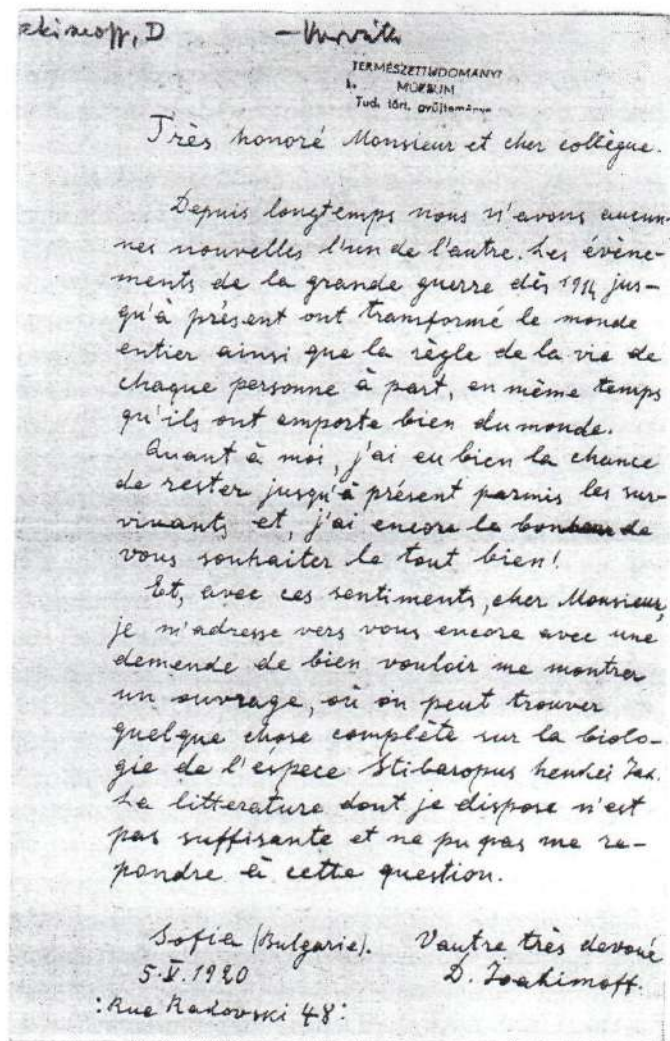 zkimoff, D — Horváth
TERMÉSZETTUDOMÁNYI
MÚZEUM
Tud. tört. gyűjtemény
Très honoré Monsieur et cher collègue.
Depuis longtemps nous n'avons aucun-
nes nouvelles l'un de l'autre. Les évène-
ments de la grande guerre dès 1914 jus-
qu'à présent ont transformé le monde
entier ainsi que la règle de la vie de
chaque personne à part, en même temps
qu'ils ont emporte bien du monde.
Quant à moi, j'ai eu bien la chance
de rester jusqu'à présent parmis les sur-
vivants et, j'ai encore le bonheur de
vous souhaiter le tout bien!
Et, avec ces sentiments, cher Monsieur,
je m'adresse vers vous encore avec une
demende de bien vouloir me montrer
un ouvrage, où on peut trouver
quelque chose complète sur la biolo-
gie de l'éspece Stibaropus henkei Jak.
La litterature dont je dispose n'est
pas suffisante et ne pu pas me re-
pondre à cette question.
Sofia (Bulgarie). Vautre très devoué
5.V.1920 D. Joakimoff.
:Rue Radovski 48: